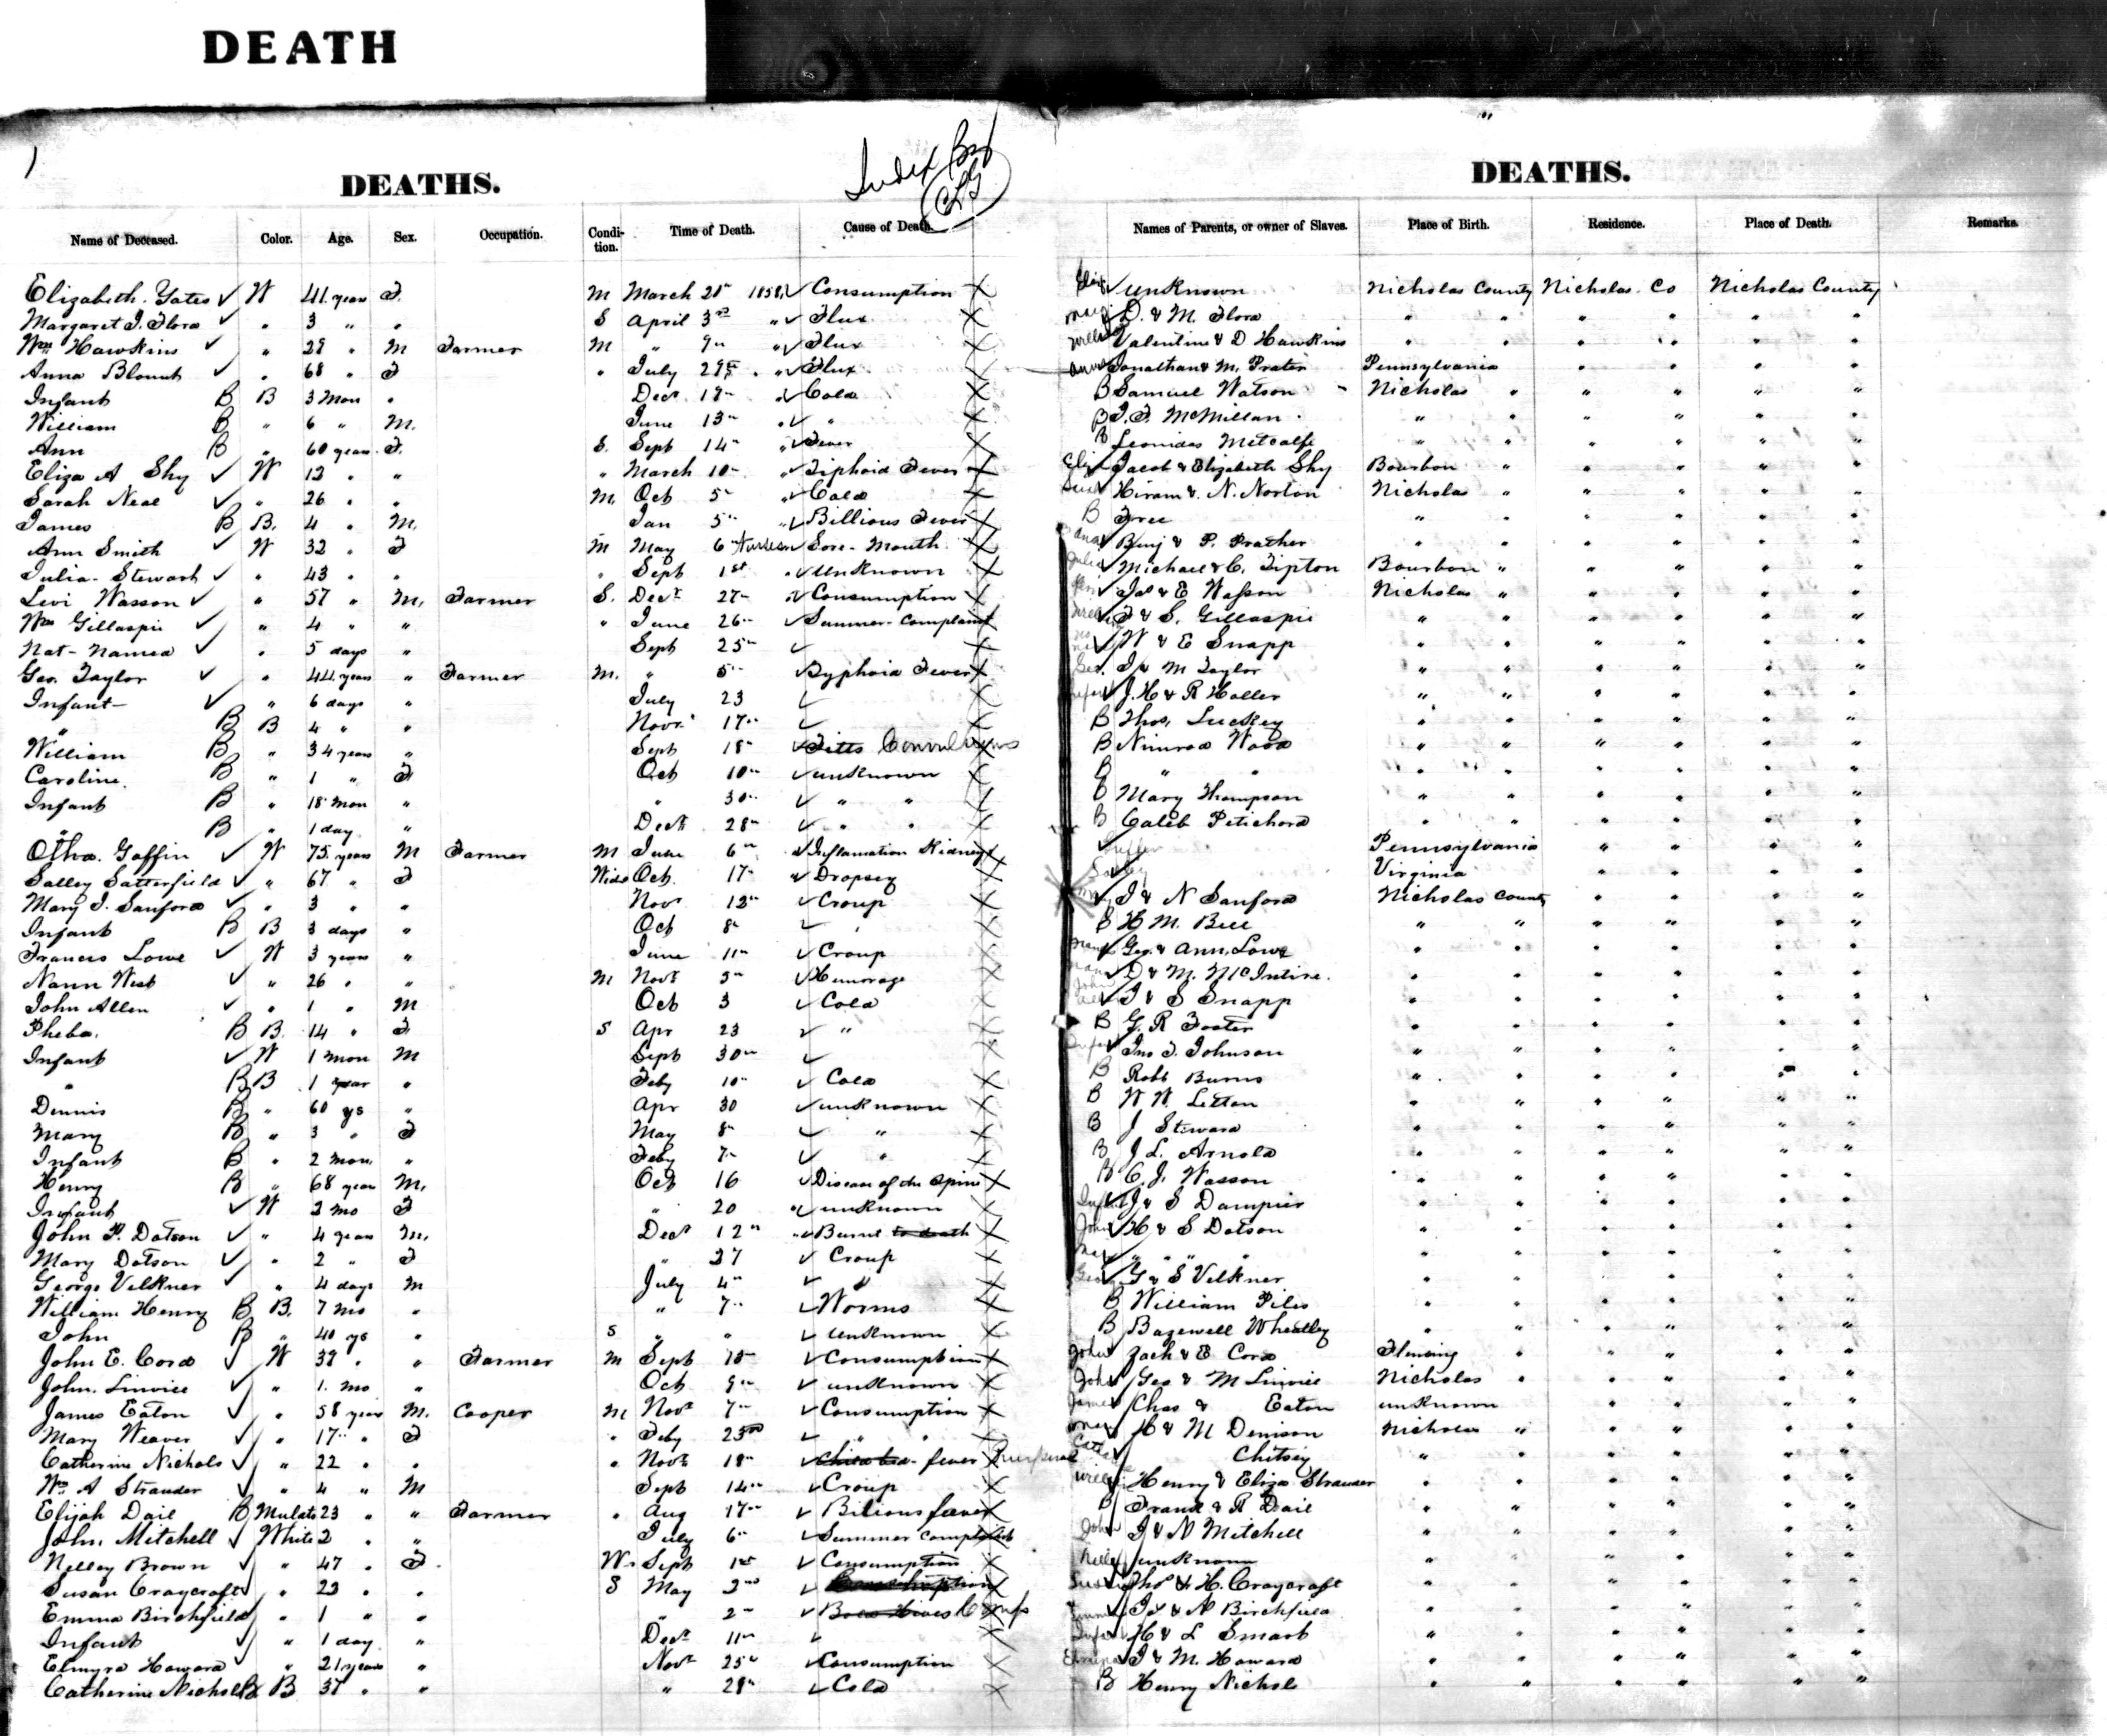 DEATH
Index By
DEATHS. DEATHS.
Name of Deceased. Color. Age. Sex. Occupation. Condition. Time of Death. Cause of Death. Names of Parents, or owner of Slaves. Place of Birth. Residence. Place of Death. Remarks.
Elizabeth Yates W 41 years F. M March 1858 Consumption unknown Nicholas County Nicholas Co Nicholas County
Margaret J. Flora " 3 " " S April 3rd " Flux D. & M. Flora " " " " " "
Wm Hawkins " 29 " M Farmer M " 9th " Flux Valentine & D Hawkins " " " " " "
Anna Blount " 68 " F " July 29th " Flux Jonathan & M. Prater Pennsylvania " " " "
Infant B B 3 Mon " Dec 17th " Cold B Samuel Watson Nicholas " " " " "
William B " 6 " M. June 13th " " B J. F. McMillan " " " " " "
Ann B " 60 years F. S. Sept 14th " Fever B Leonidas Metcalfe " " " " " "
Eliza A Shy W 13 " " " March 10th " Tiphoid Fever Jacob & Elizabeth Shy Bourbon " " " " "
Sarah Neal " 26 " " M. Oct 5th " Cold Hiram & N. Norton Nicholas " " " " "
James B B. 4 " M. Jan 5th " Billious Fever B Free " " " " " "
Ann Smith W 32 " F M May 6th Nurseing Sore-Mouth Ana Benj & P. Prather " " " " " "
Julia Stewart " 43 " " " Sept 1st " unknown Julia Michael & C. Tipton Bourbon " " " " "
Levi Wasson " 57 " M, Farmer S. Dect 27th " Consumption Levi Jas & E Wasson Nicholas " " " " "
Wm Gillaspie " 4 " " " June 26th Summer-Complaint F & S. Gillaspie " " " " " "
Not-Named " 5 days " Sept 25th W & E Snapp " " " " " "
Geo. Taylor " 44 years " Farmer M. " 5th Typhoid Fever Geo. J & M Taylor " " " " " "
Infant " 6 days " July 23 J. H & R Holler " " " " " "
" B B 4 " " Novr 17th B Thos. Luckey " " " " " "
William B " 34 years " Sept 18th Fitts Convulsions B Nimrod Wood " " " " " "
Caroline. B " 1 " F Oct 10th unknown B " " " " " " " "
Infant B " 18 Mon " " 30th " " B Mary Thompson " " " " " "
" B " 1 day " Dect 28th " " B Caleb Petichord " " " " " "
Otho. Gaffin W 75 years M Farmer M June 6th Inflamation Kidneys Pennsylvania " " " "
Salley Satterfield " 67 " F Wido Oct. 17th Dropsey Salley Virginia " " " "
Mary J. Sanford " 3 " " Novr 12th Croup J & N Sanford Nicholas County " " " "
Infant B B 3 days " Oct 8th B H. M. Bell " " " " " "
Frances Lowe W 3 years " June 11th Croup Geo. & Ann. Lowe " " " " " "
Nann West " 26 " " M Novr 5th Hemorage D & M. McIntire. " " " " " "
John Allen " 1 " M Oct 3 Cold John J & S Snapp " " " " " "
Pheba. B B. 14 " F S Apr 23 " B G. R Foster " " " " " "
Infant W 1 mon M Sept 30th Jno T. Johnson " " " " " "
" B B 1 year " Feby 10th Cold B Robt Burns " " " " " "
Dennis B " 60 ys " Apr 30 unknown B W W. Letton " " " " " "
Mary B " 3 " F May 8th " B J Steward " " " " " "
Infant B " 2 mon. " Feby 7th " B J L. Arnold " " " " " "
Henry B " 68 year M, Oct 16 Disease of the Spine B C. J. Wasson " " " " " "
Infant W 3 mo F " 20 unknown J & S Dampier " " " " " "
John P. Dotson " 4 years M. Decr 12th Burnt to death John H & S Dotson " " " " " "
Mary Dotson " 2 " F " 27 Croup " " " " " " " " " "
George Velkner " 4 days M July 4th " George G & S Velkner " " " " " "
William Henry B B. 7 mo " " 7th Worms B William Piles " " " " " "
John B " 40 ys " S " " unknown B Bazewell Wheatley " " " " " "
John E. Cord W 39 " " Farmer M Sept 15th Consumption John Zach & E Cord Fleming " " " " "
John. Linvill " 1. mo " Oct 9th unknown John Geo & M Linvill Nicholas " " " " "
James Eaton " 58 years M. Cooper M Novr 7th Consumption James Chas & Eaton unknown " " " "
Mary Weaver " 17 " F " Feby 23rd " " Mary H & M Denison Nicholas " " " " "
Catherine Nichols " 22 " " " Novr 18th Child bed fever Puerperal Cath Chitsey " " " " " "
Wm A Strander " 4 " M Sept 14th Croup Henry & Eliza Strander " " " " " "
Elijah Dail B Mulato 23 " " Farmer " Aug 17th Bilious fever B Frank & R Dail " " " " " "
John. Mitchell White 2 " " July 6th Summer Complaint John J & N Mitchell " " " " " "
Nelley Brown " 47 " F. W. Sept 1st Consumption Nelley unknown " " " " " "
Susan Craycraft " 23 " " S May 2nd Consumption Susan Thos & H. Craycraft " " " " " "
Emma Birchfield " 1 " " " 2nd Bold Hives Croup Emma J & N Birchfield " " " " " "
Infant " 1 day " Dect 11th Infant H & L Smart " " " " " "
Elmyra Howard " 21 years " Novr 25th Consumption Elmyra J & M. Howard " " " " " "
Catherine Nichols B B 37 " " " 28th Cold B Henry Nichols " " " " " "